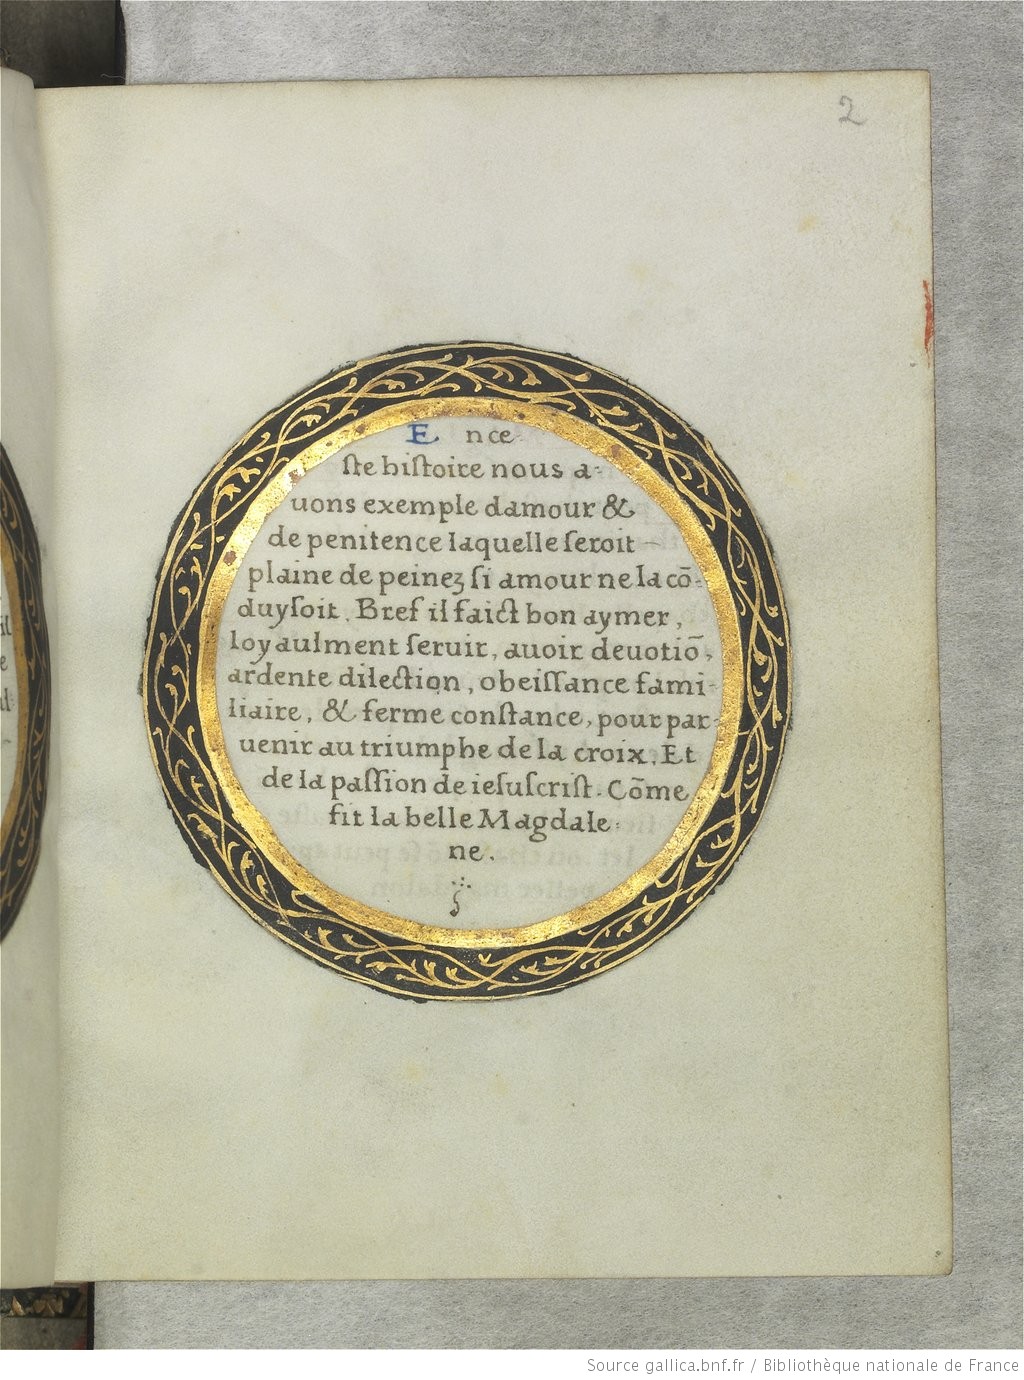 2
E nce-
ſte hiſtoire nous a-
uons exemple damour &
de penitence laquelle ſeroit
plaine de peineʒ ſi amour ne la cō-
duyſoit. Bref il faict bon aymer,
loyaulment ſeruir, auoir deuotiō,
ardente dilection, obeiſſance fami-
liaire, & ferme conſtance, pour par-
uenir au triumphe de la croix. Et
de la paſſion de ieſuſcriſt. Cōme
fit la belle Magdale-
ne.
Source gallica.bnf.fr / Bibliothèque nationale de France